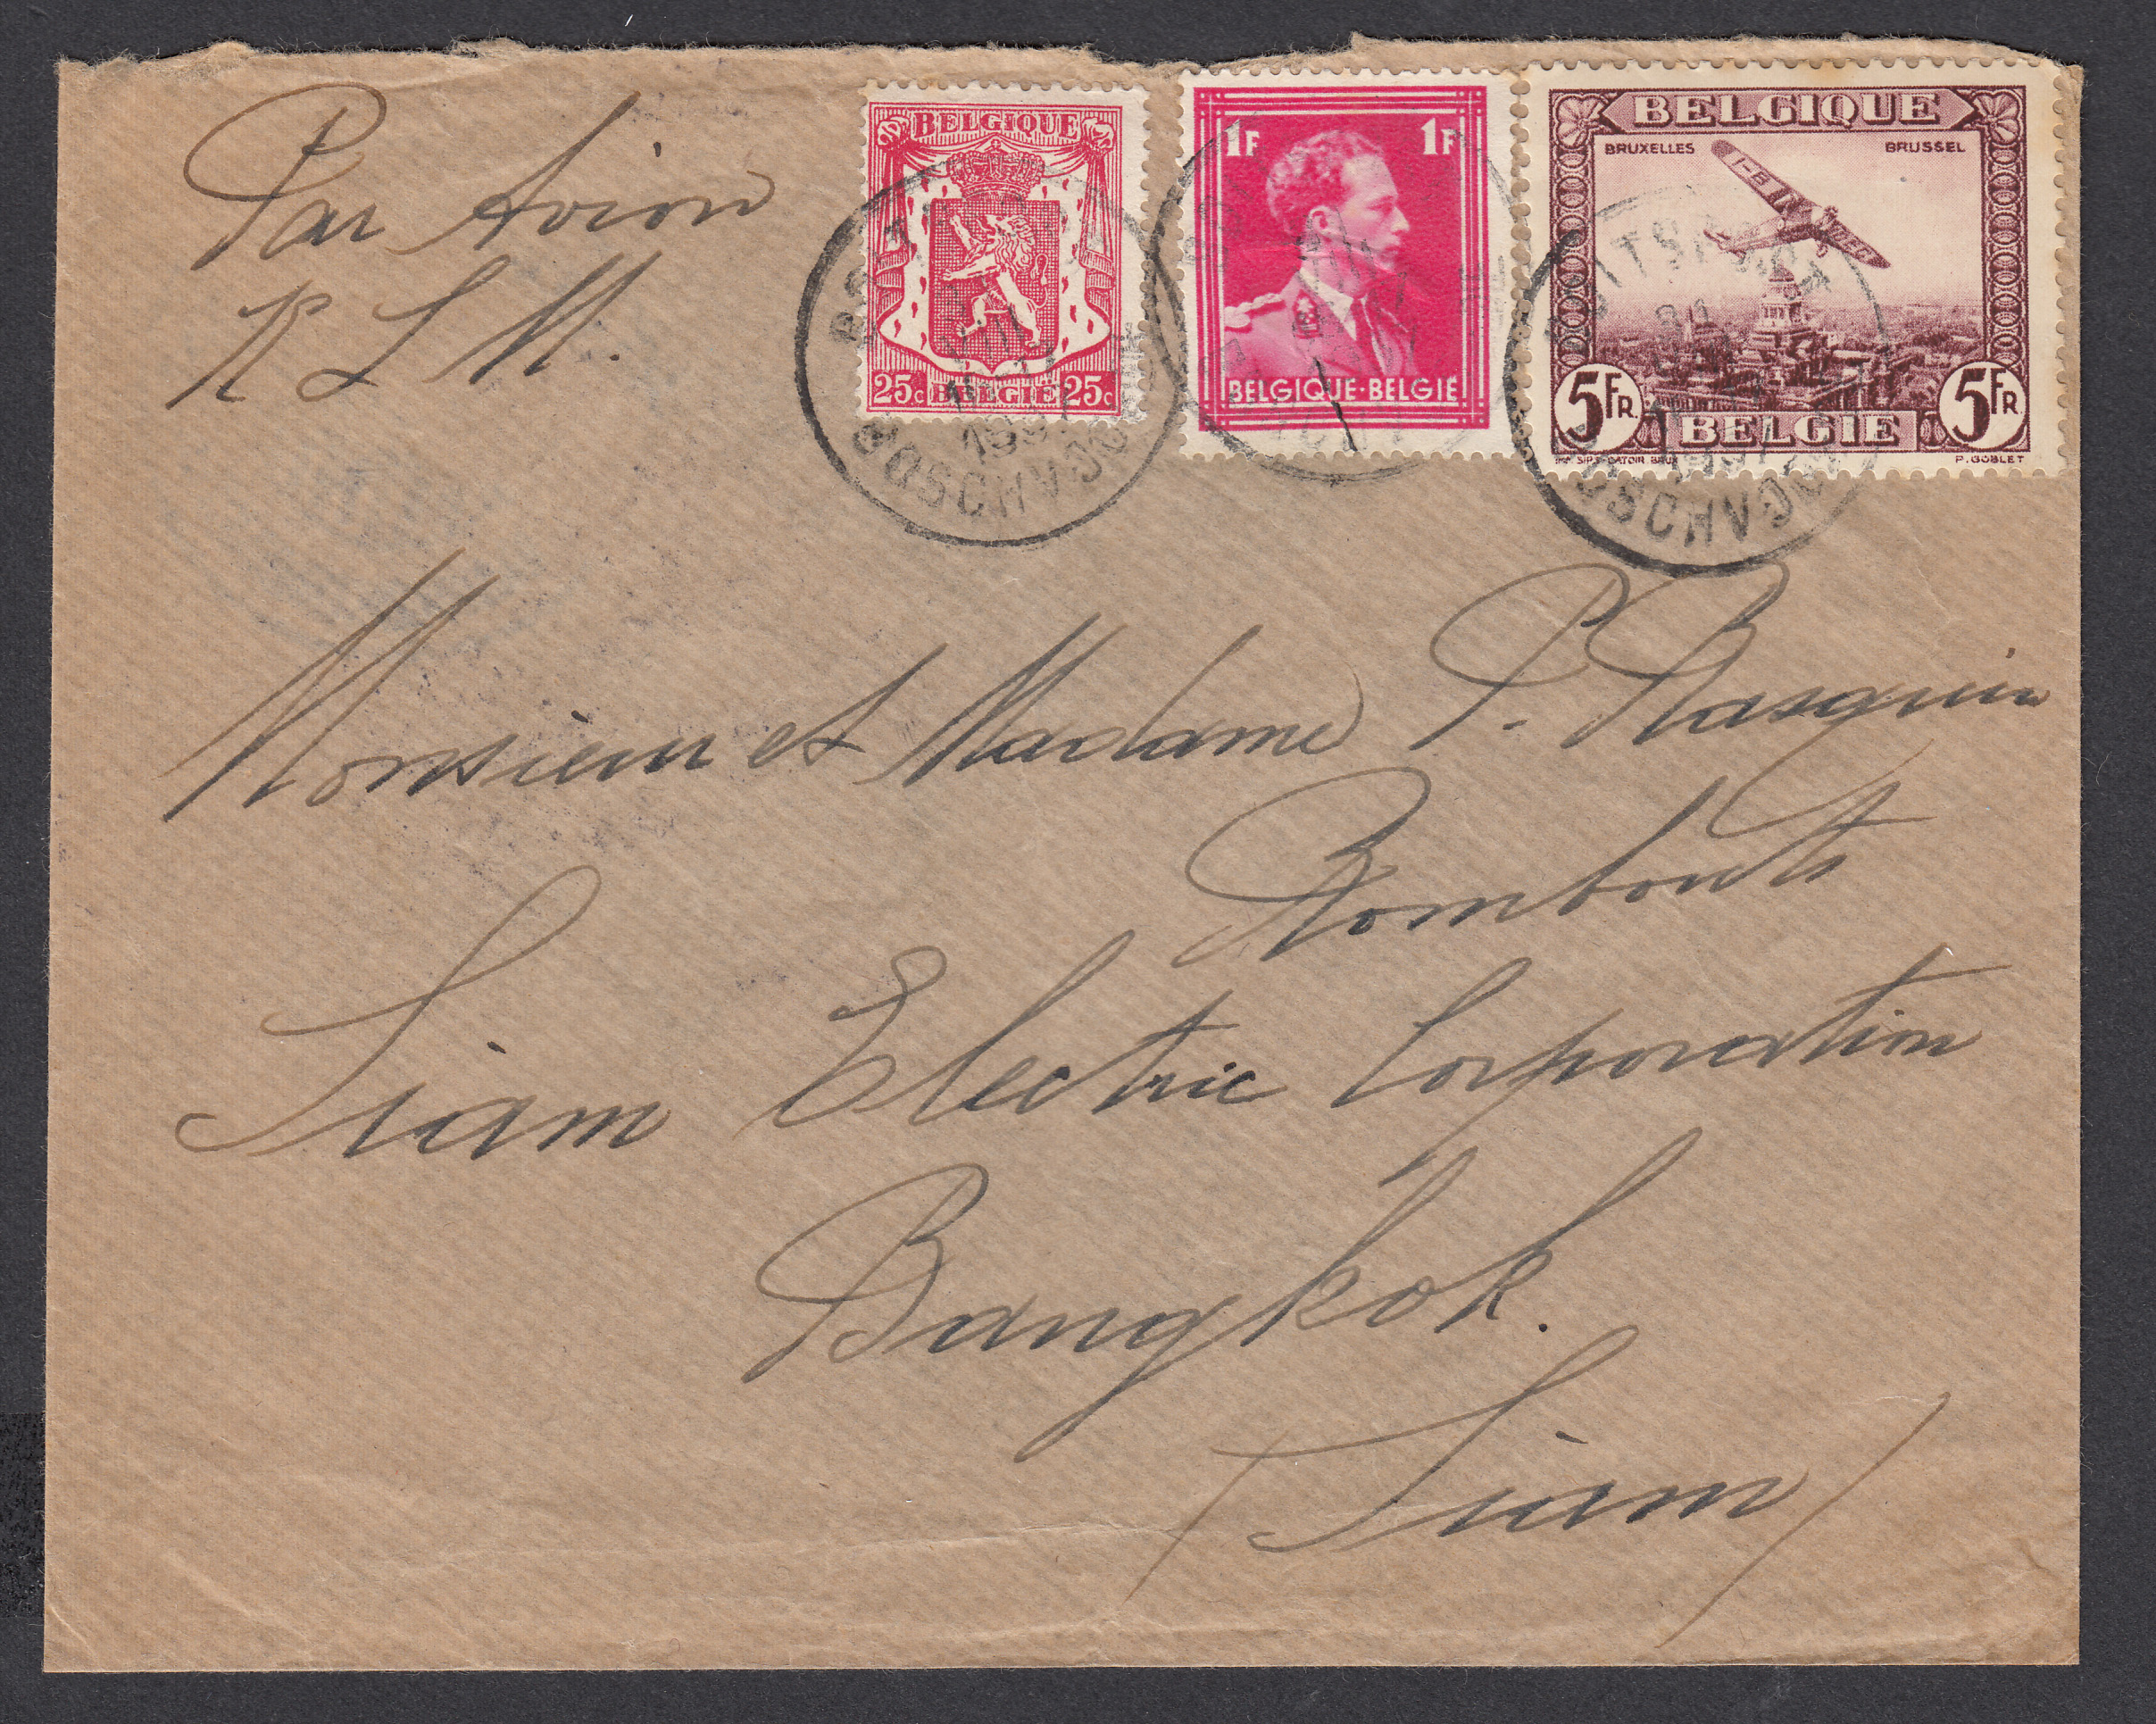 Par Avion
K L M.
BELGIQUE
25c BELGIE 25c
1F 1F
BELGIQUE·BELGIE
BELGIQUE
BRUXELLES BRUSSEL
5FR BELGIE 5FR
P. GOBLET
1937
BOSCHVOORDE
BOITSFORT
BOSCHVOORDE
Monsieur et Madame P. Rasquin
Rombouts
Siam Electric Corporation
Bangkok.
/Siam/